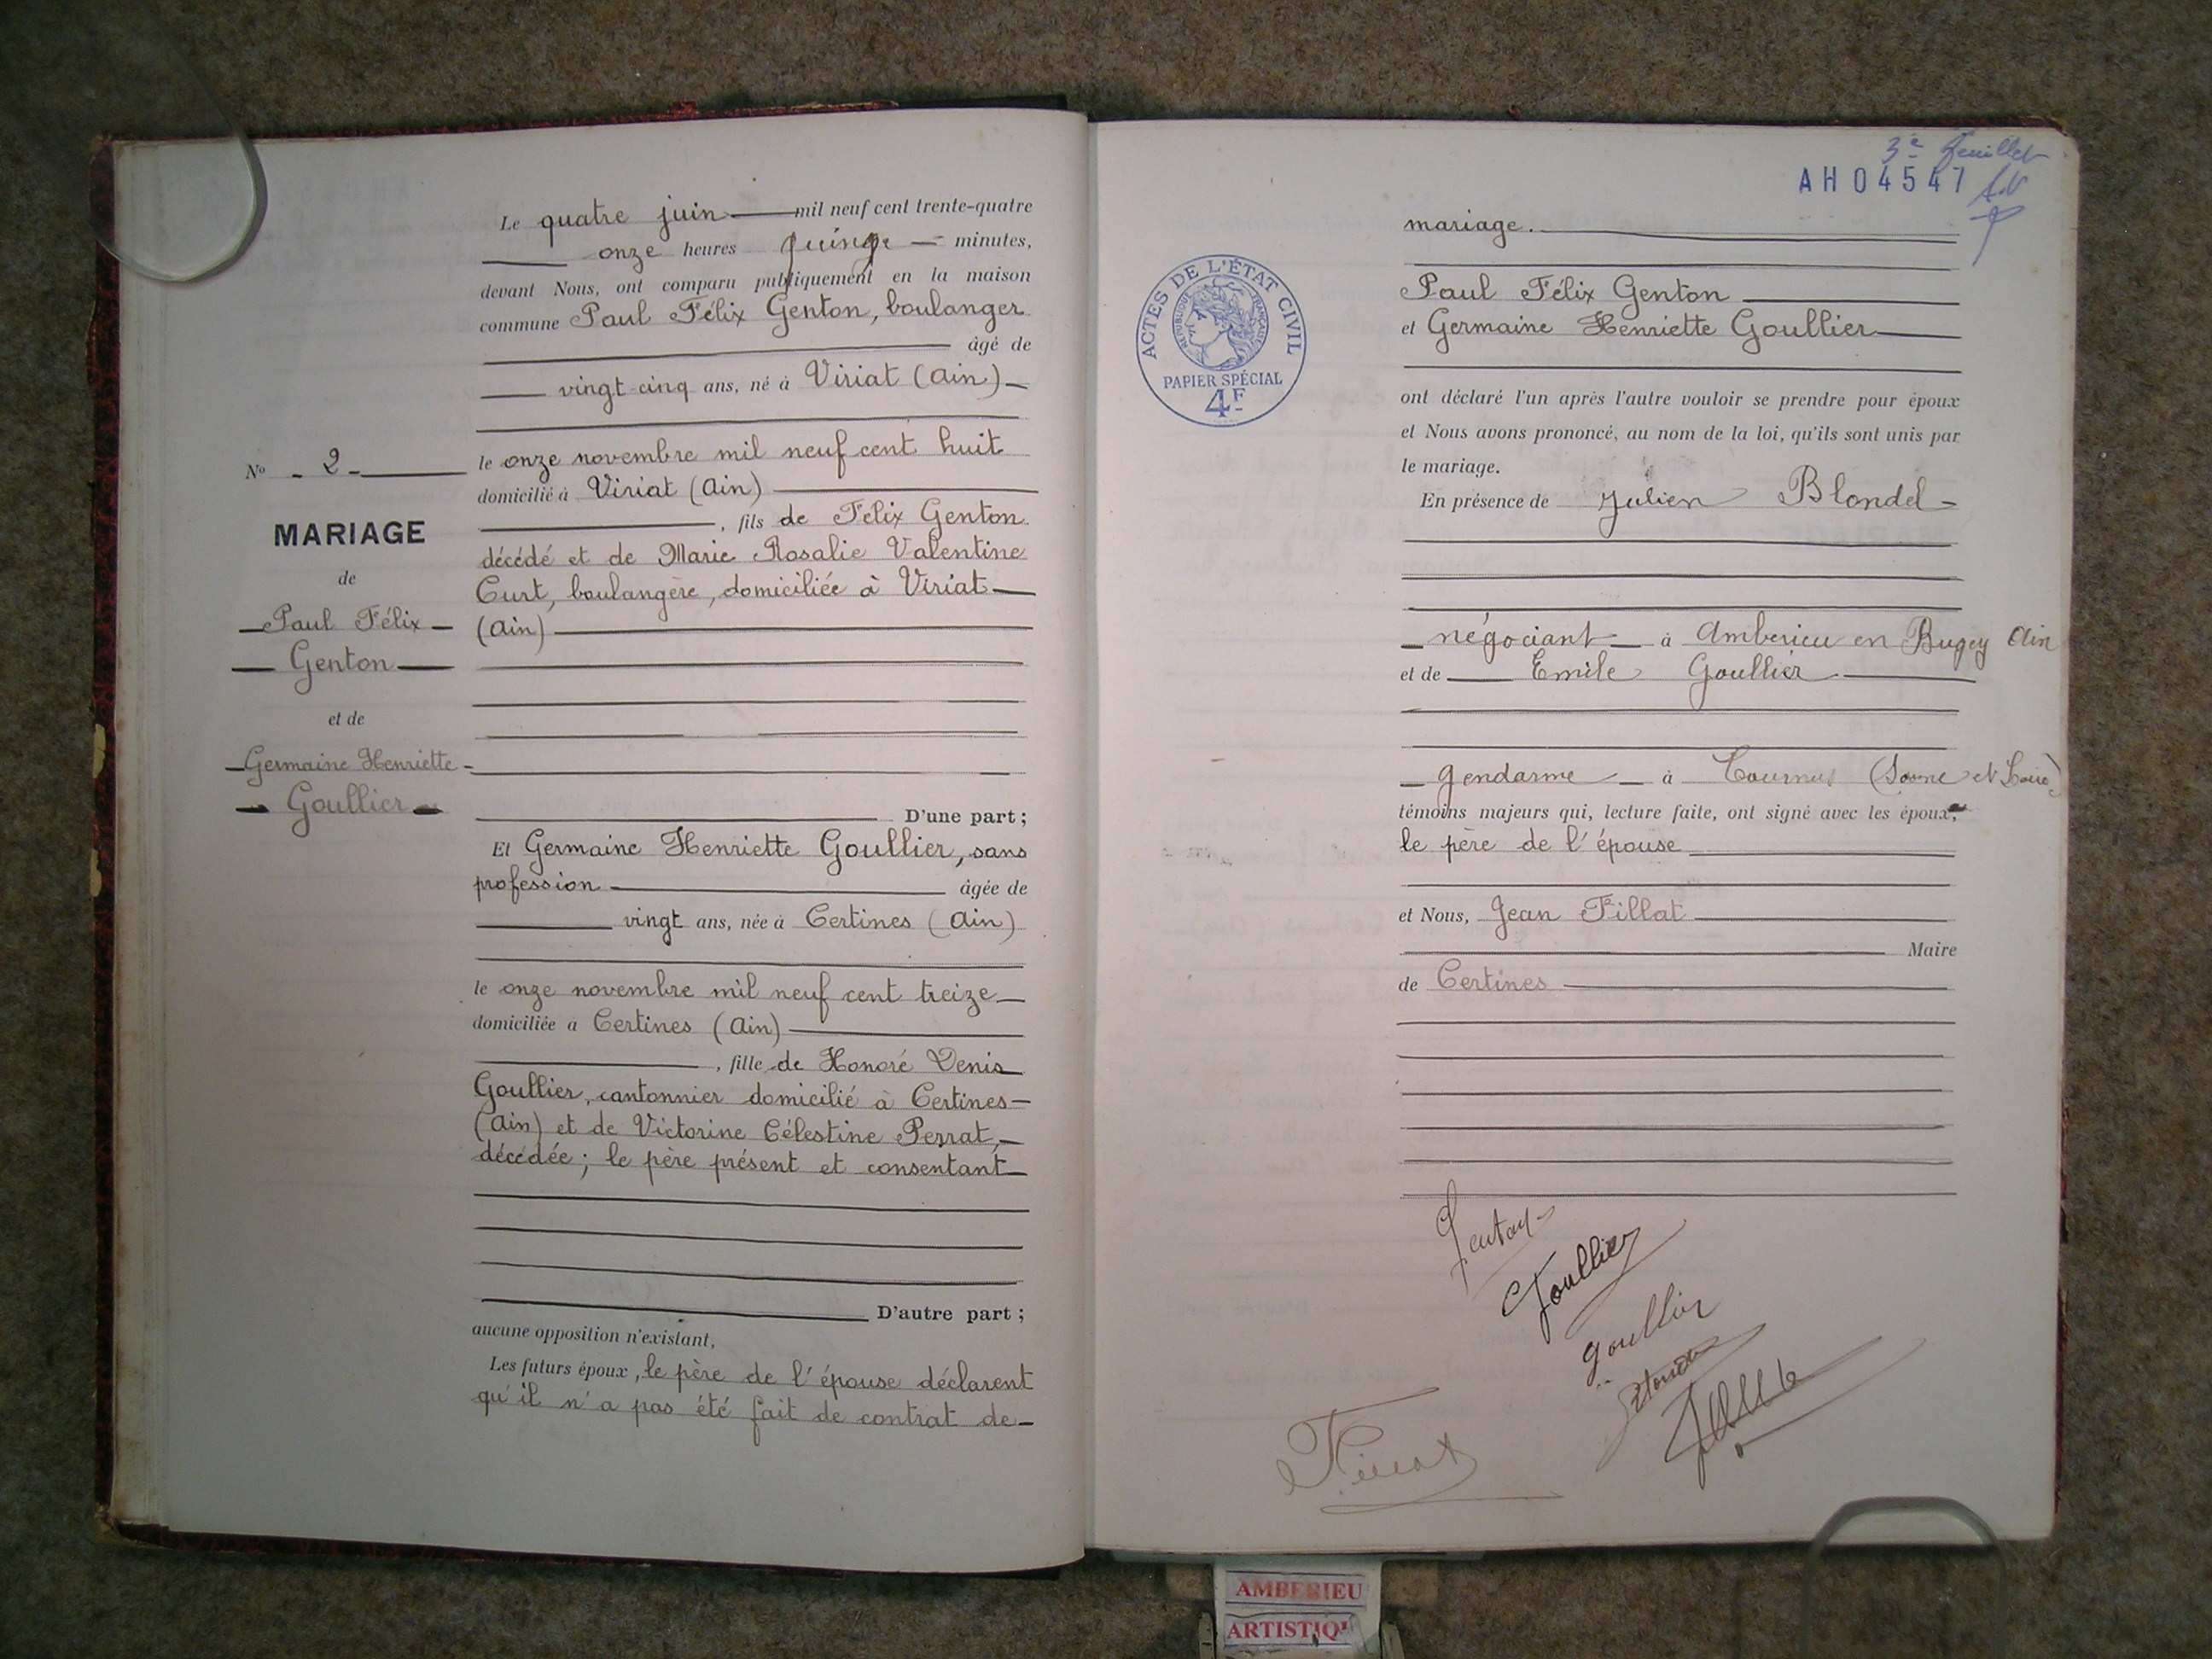 Le quatre juin mil neuf cent trente-quatre
onze heures quinze minutes,
devant Nous, ont comparu publiquement en la maison
commune Paul Félix Genton, boulanger
âgé de
vingt-cinq ans, né à Viriat (Ain)
le onze novembre mil neuf cent huit
domicilié à Viriat (Ain)
, fils de Felix Genton
décédé et de Marie Rosalie Valentine
Curt, boulangère, domiciliée à Viriat
(Ain)
D'une part;
Et Germaine Henriette Goullier, sans
profession âgée de
vingt ans, née à Certines (Ain)
le onze novembre mil neuf cent treize
domiciliée à Certines (Ain)
, fille de Honoré Denis
Goullier, cantonnier domicilié à Certines
(Ain) et de Victorine Célestine Perrat,
décédée; le père présent et consentant
D'autre part;
aucune opposition n'existant,
Les futurs époux, le père de l'épouse déclarent
qu'il n'a pas été fait de contrat de
N° - 2 -
MARIAGE
de
Paul Félix
Genton
et de
Germaine Henriette
Goullier
3e feuillet
AH04547
ACTES DE L'ÉTAT CIVIL
RÉPUBLIQUE FRANÇAISE
PAPIER SPÉCIAL
4F
mariage.
Paul Félix Genton
et Germaine Henriette Goullier
ont déclaré l'un après l'autre vouloir se prendre pour époux
et Nous avons prononcé, au nom de la loi, qu'ils sont unis par
le mariage.
En présence de Julien Blondel
négociant à Amberieu en Bugey Ain
et de Emile Goullier
gendarme à Tournus (Saone et Loire)
témoins majeurs qui, lecture faite, ont signé avec les époux,
le père de l'épouse
et Nous, Jean Fillat
Maire
de Certines
Genton
Goullier
goullier
AMBERIEU
ARTISTIQ